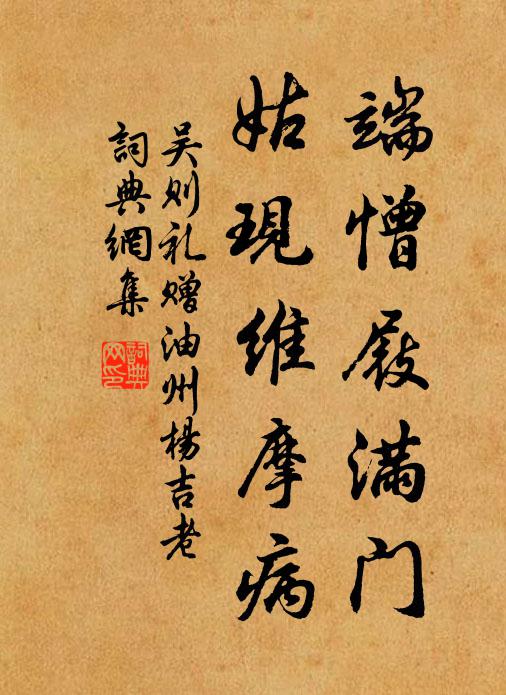 端憎屐满门
姑現维摩病
吴则礼赠油州楊吉老
詞典網集
詞典網印